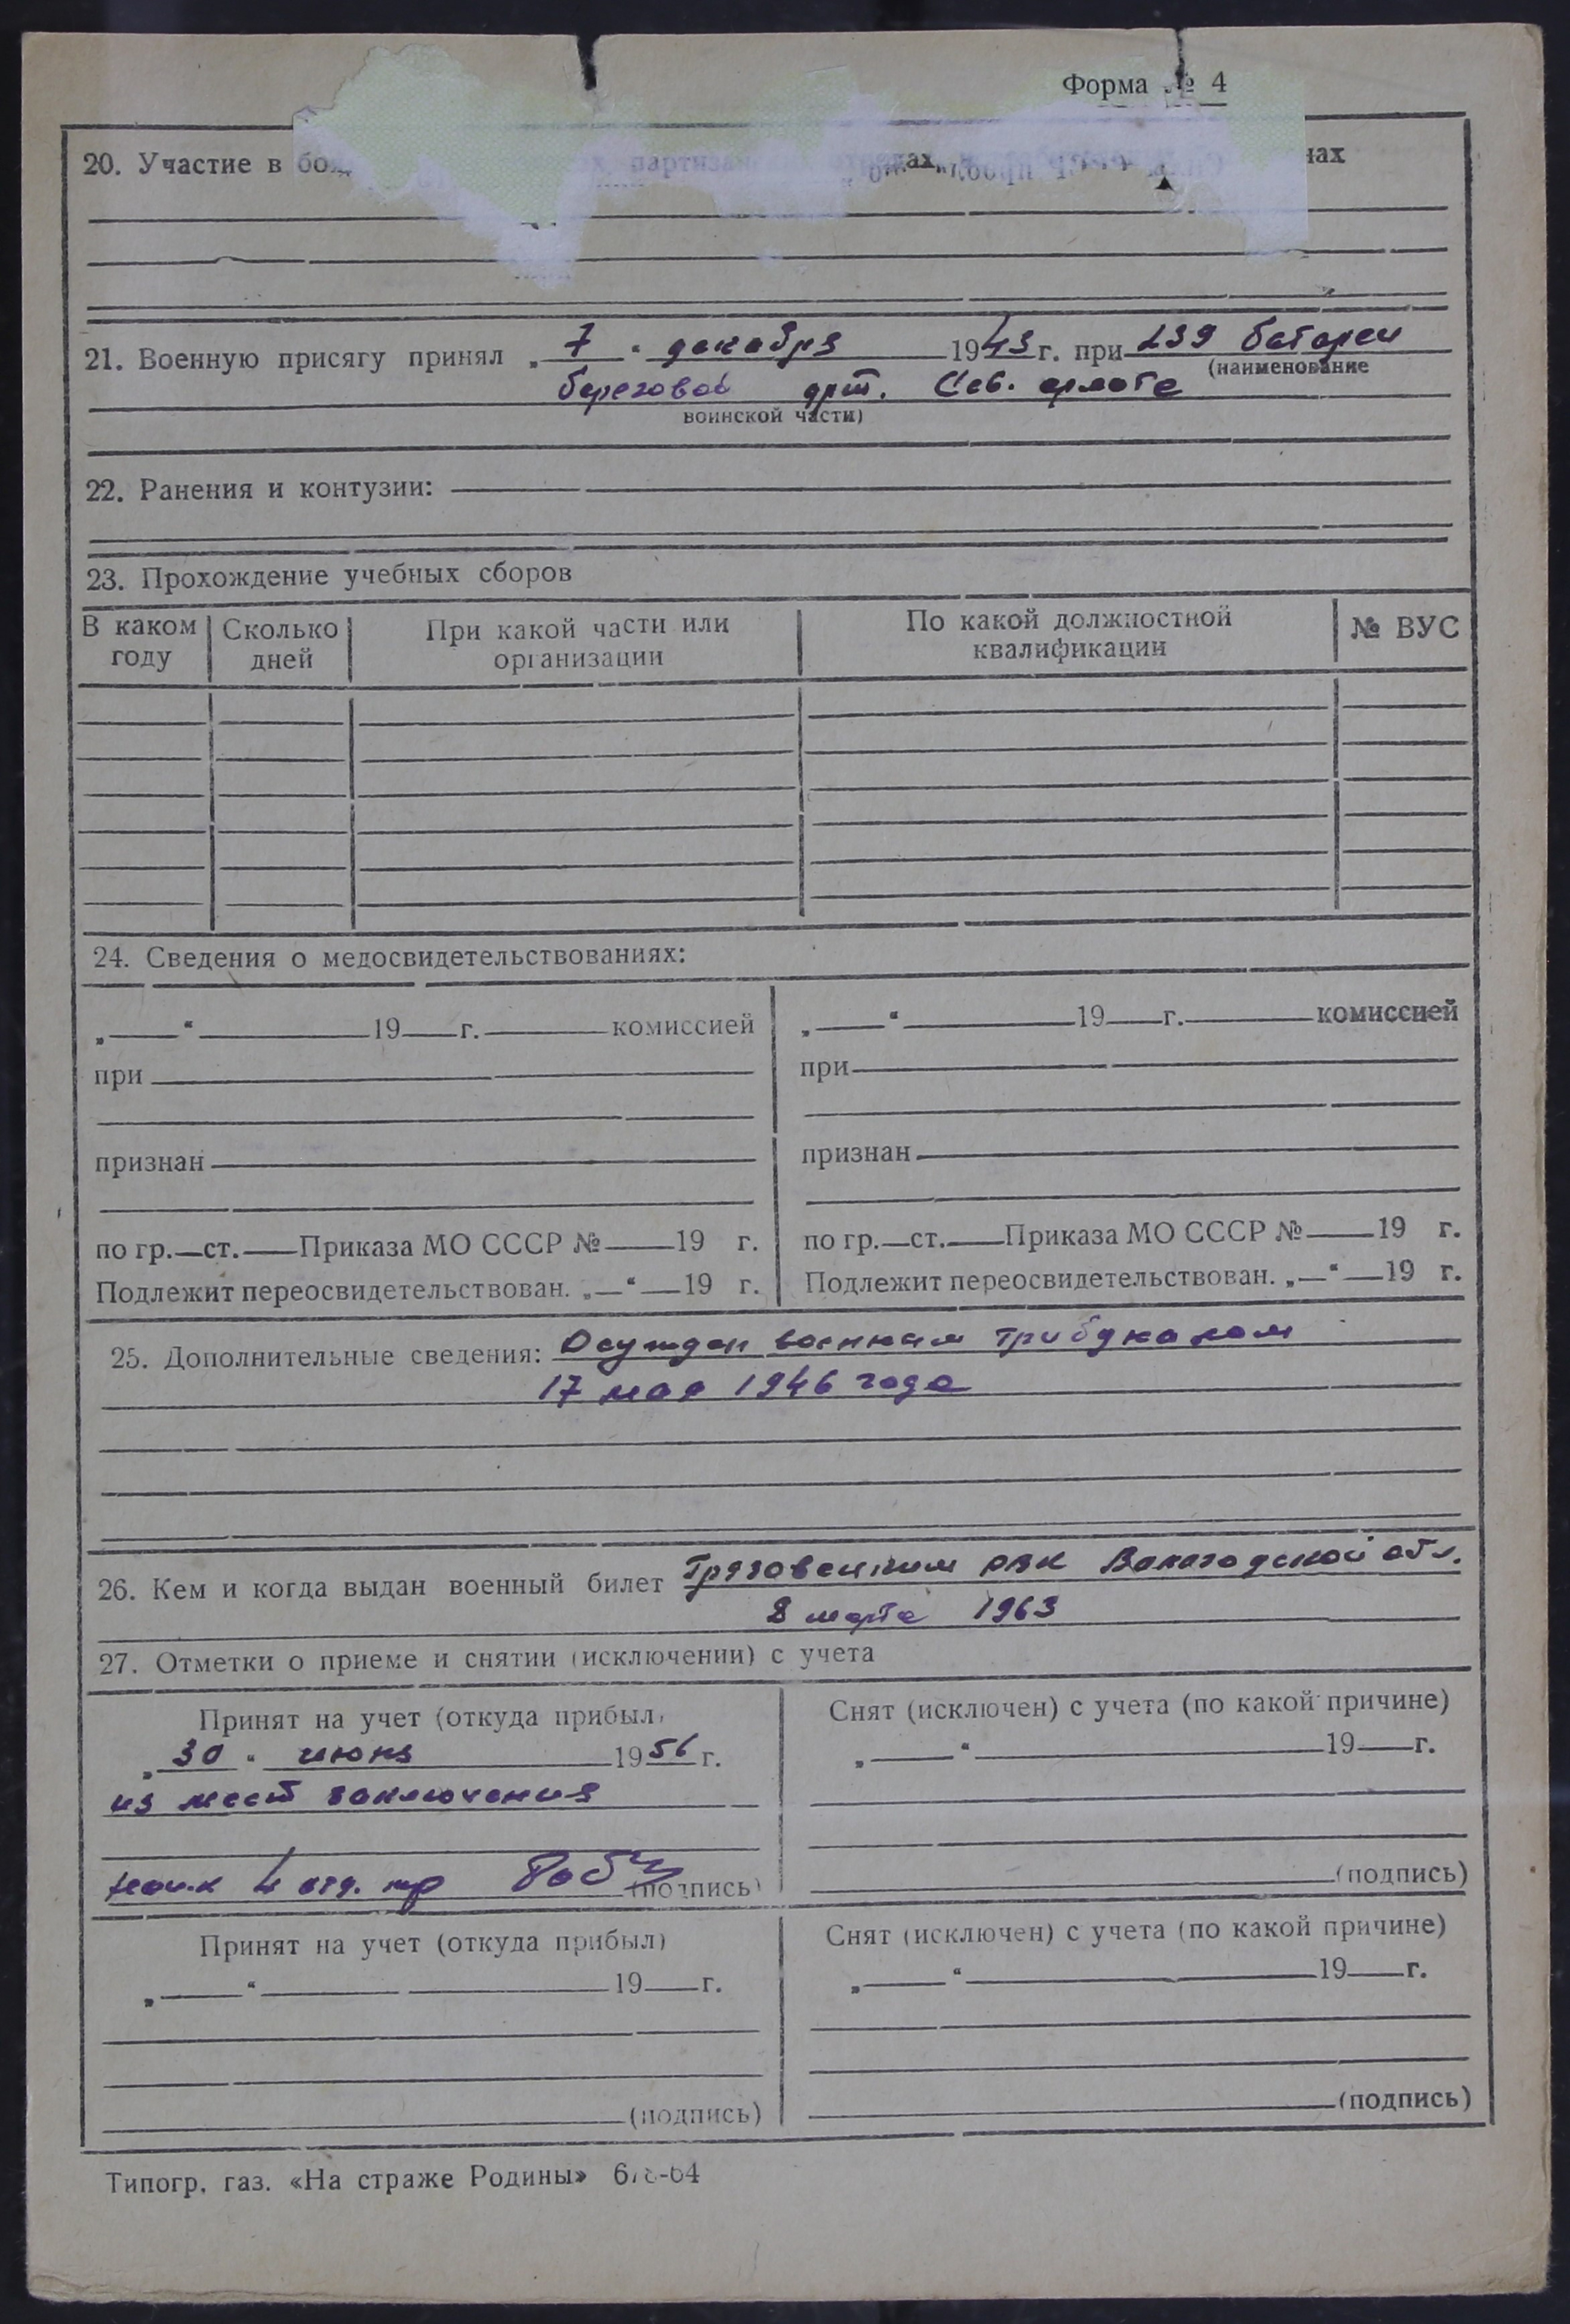 Форма № 4
20. Участие в партизанских нах
21. Военную присягу принял „ 7 “ декабря 1943 г. при 239 батареи
(наименование
береговой арт. Сев. флота
воинской части)
22. Ранения и контузии:
23. Прохождение учебных сборов
В каком году Сколько дней При какой части или организации По какой должностной квалификации № ВУС
24. Сведения о медосвидетельствованиях:
„ “ 19 г. комиссией „ “ 19 г. комиссией
при при
признан признан
по гр. ст. Приказа МО СССР № 19 г. по гр. ст. Приказа МО СССР № 19 г.
Подлежит переосвидетельствован. „ “ 19 г. Подлежит переосвидетельствован. „ “ 19 г.
25. Дополнительные сведения: Осужден военным трибуналом
17 мая 1946 года
26. Кем и когда выдан военный билет Грязовецким РВК Вологодской обл.
8 марта 1963
27. Отметки о приеме и снятии (исключении) с учета
Принят на учет (откуда прибыл) Снят (исключен) с учета (по какой причине)
„ 30 “ июня 1956 г. „ “ 19 г.
из мест заключения
нач.к 4 отд. (подпись) (подпись)
Принят на учет (откуда прибыл) Снят (исключен) с учета (по какой причине)
„ “ 19 г. „ “ 19 г.
(подпись) (подпись)
Типогр. газ. «На страже Родины»